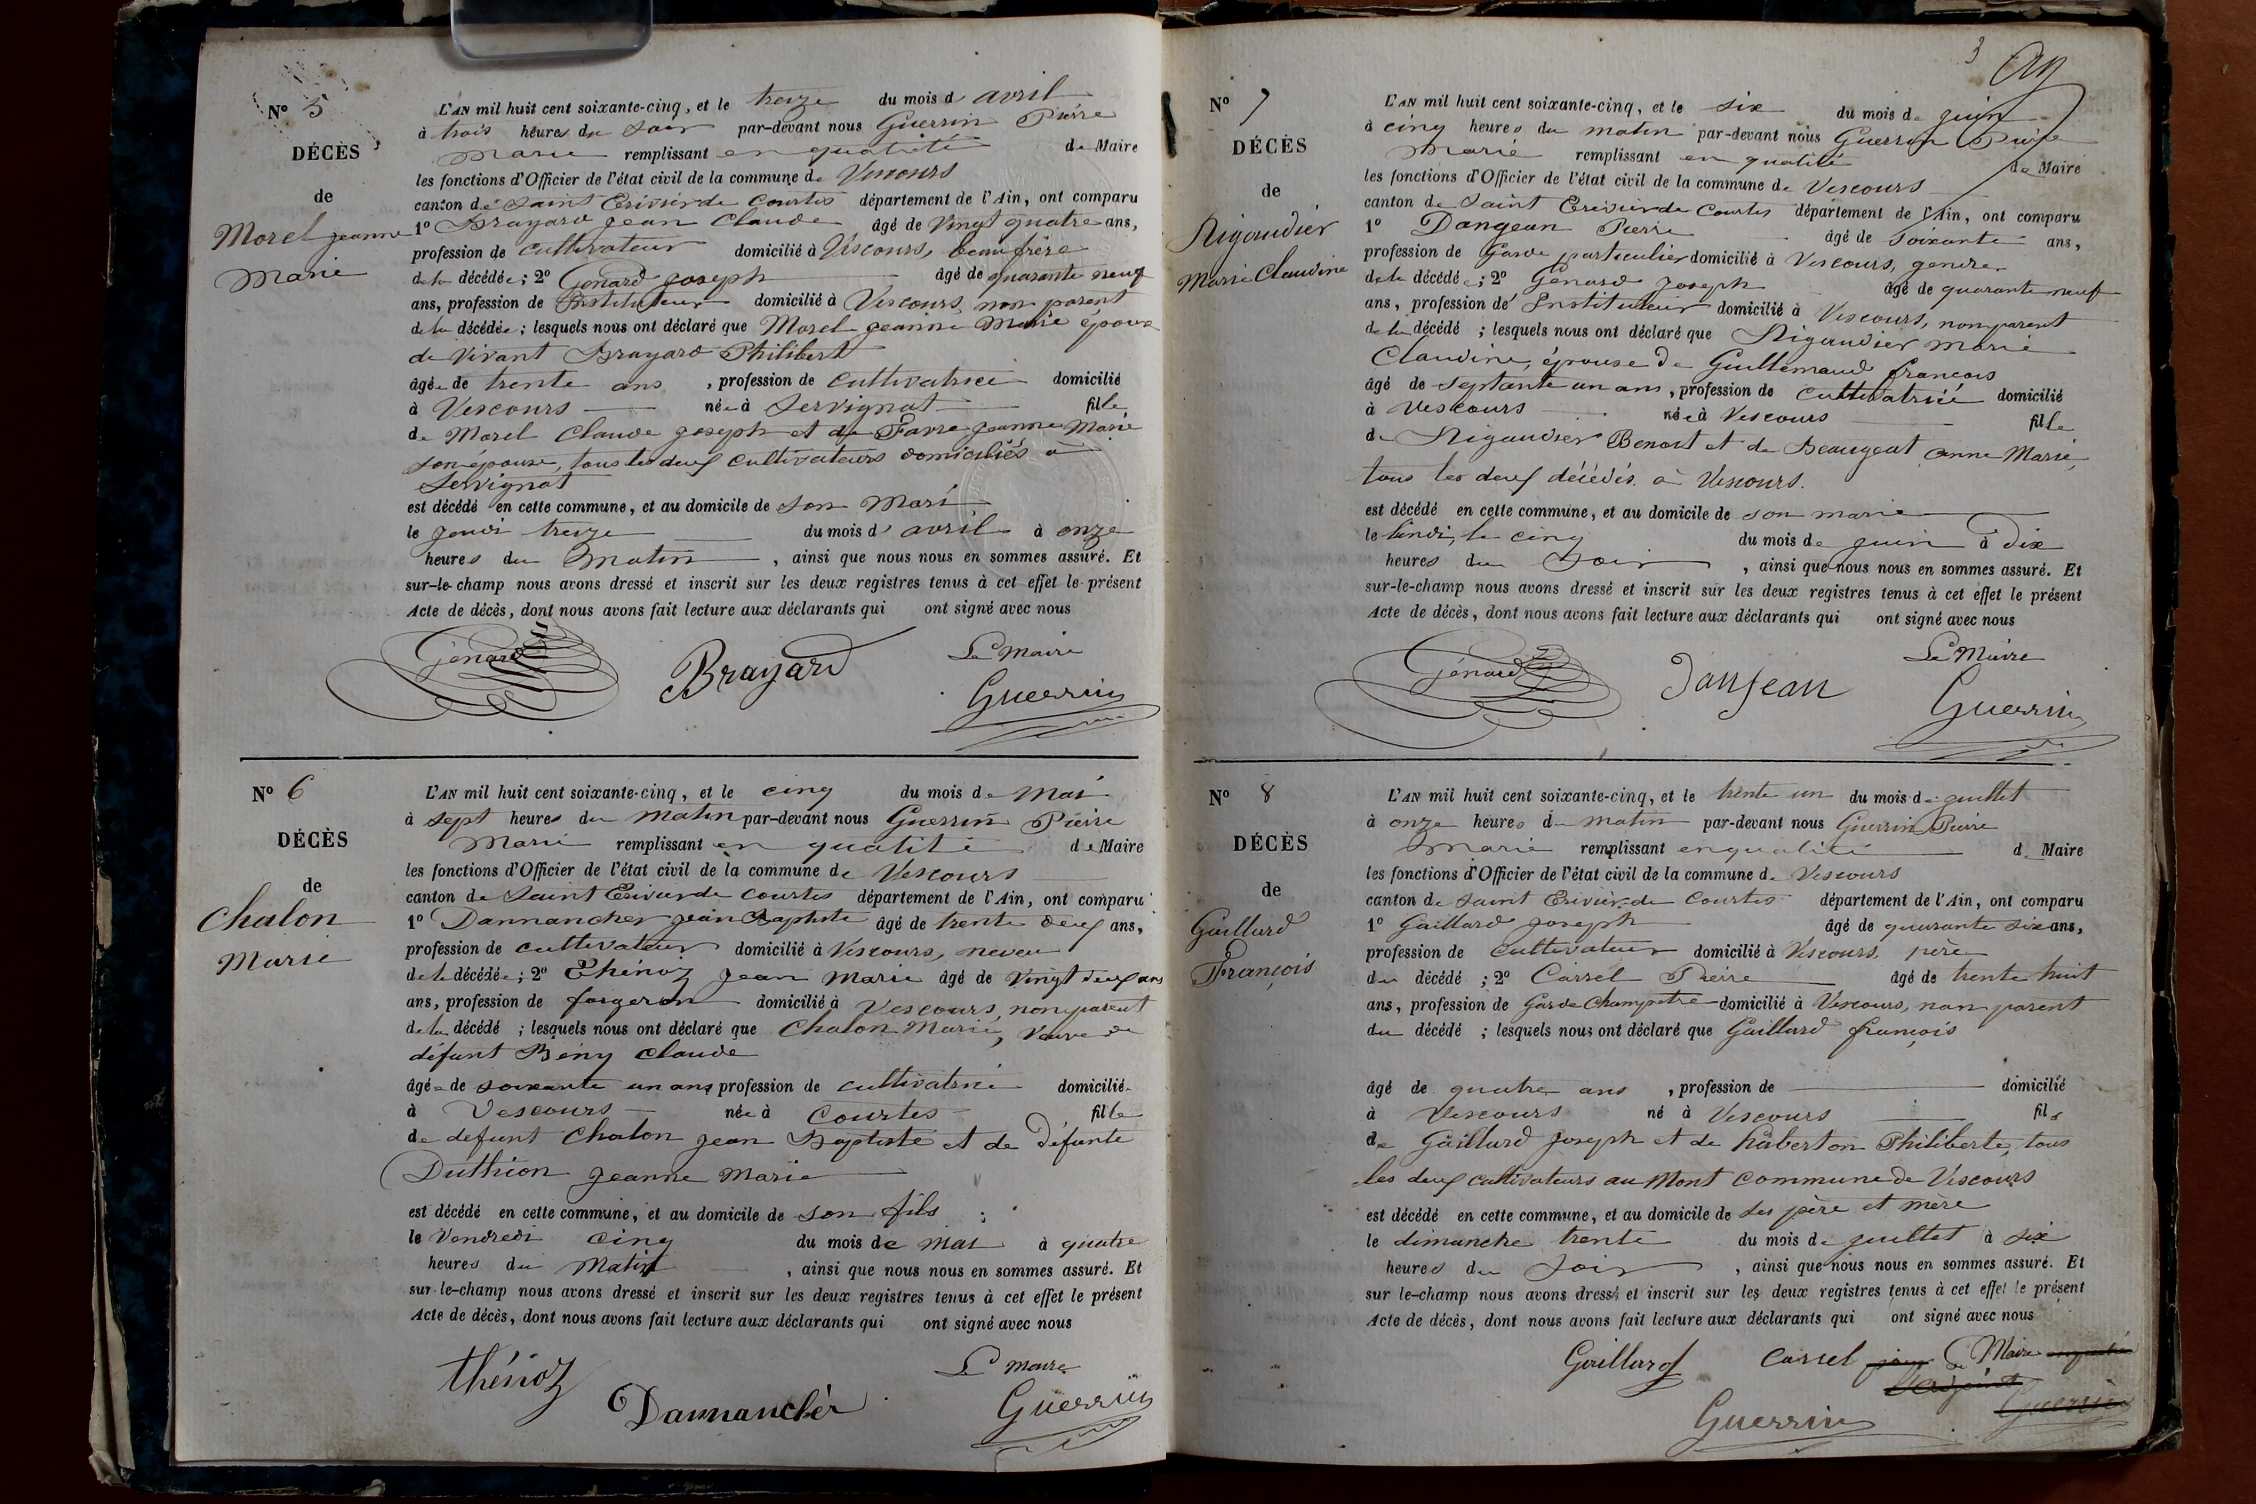 N° 5
DÉCÈS
de
Morel Jeanne
Marie
L'AN mil huit cent soixante-cinq, et le treize du mois d'avril
à trois heures du soir par-devant nous Guerrin Pierre
Marie remplissant en qualité de Maire
les fonctions d'Officier de l'état civil de la commune de Vescours
canton de Saint Trivier de Courtes département de l'Ain, ont comparu
1° Brayard Jean Claude âgé de vingt quatre ans,
profession de cultivateur domicilié à Vescours, beau frère
de la décédée; 2° Génard Joseph âgé de quarante neuf
ans, profession de Instituteur domicilié à Vescours, non parent
de la décédée; lesquels nous ont déclaré que Morel Jeanne Marie épouse
de vivant Brayard Philibert
âgée de trente ans, profession de cultivatrice domicilié
à Vescours née à Servignat fille
de Morel Claude Joseph et de Favre Jeanne Marie
son épouse, tous les deux cultivateurs domiciliés à
Servignat
est décédé en cette commune, et au domicile de son mari
le jeudi treize du mois d'avril à onze
heures du matin, ainsi que nous nous en sommes assuré. Et
sur-le-champ nous avons dressé et inscrit sur les deux registres tenus à cet effet le présent
Acte de décès, dont nous avons fait lecture aux déclarants qui ont signé avec nous
Le Maire
Génard Brayard Guerrin
N° 6
DÉCÈS
de
Chalon
Marie
L'AN mil huit cent soixante-cinq, et le cinq du mois de Mai
à sept heures du matin par-devant nous Guerrin Pierre
Marie remplissant en qualité de Maire
les fonctions d'Officier de l'état civil de la commune de Vescours
canton de Saint Trivier de Courtes département de l'Ain, ont comparu
1° Dannancher Jean Baptiste âgé de trente deux ans,
profession de cultivateur domicilié à Vescours, neveu
de la décédée; 2° Thénoz Jean Marie âgé de vingt deux ans
ans, profession de forgeron domicilié à Vescours, non parent
de la décédé; lesquels nous ont déclaré que Chalon Marie, veuve de
défunt Bény Claude
âgée de soixante un ans profession de cultivatrice domicilié
à Vescours née à Courtes fille
de defunt Chalon Jean Baptiste et de défunte
Duthion Jeanne Marie
est décédé en cette commune, et au domicile de son fils;
le Vendredi cinq du mois de mai à quatre
heures du Matin, ainsi que nous nous en sommes assuré. Et
sur-le-champ nous avons dressé et inscrit sur les deux registres tenus à cet effet le présent
Acte de décès, dont nous avons fait lecture aux déclarants qui ont signé avec nous
Le Maire
Thénoz Dannancher Guerrin
3
N° 7
DÉCÈS
de
Rigaudier
Marie Claudine
L'AN mil huit cent soixante-cinq, et le six du mois de juin
à cinq heures du matin par-devant nous Guerrin Pierre
Marie remplissant en qualité de Maire
les fonctions d'Officier de l'état civil de la commune de Vescours
canton de Saint Trivier de Courtes département de l'Ain, ont comparu
1° Dangean Pierre âgé de soixante ans,
profession de Garde particulier domicilié à Vescours, gendre
de la décédée; 2° Génard Joseph âgé de quarante neuf
ans, profession de Instituteur domicilié à Vescours, non parent
de la décédé; lesquels nous ont déclaré que Rigaudier Marie
Claudine, épouse de Guillemaud françois
âgé de septante un ans, profession de cultivatrice domicilié
à Vescours née à Vescours fille
de Rigaudier Benoit et de Beaugeat Anne Marie,
tous les deux décédés à Vescours.
est décédé en cette commune, et au domicile de son marie
le lundi, le cinq du mois de juin à dix
heures du Soir, ainsi que nous nous en sommes assuré. Et
sur-le-champ nous avons dressé et inscrit sur les deux registres tenus à cet effet le présent
Acte de décès, dont nous avons fait lecture aux déclarants qui ont signé avec nous
Le Maire
Génard Danjean Guerrin
N° 8
DÉCÈS
de
Gaillard
François
L'AN mil huit cent soixante-cinq, et le trente un du mois de juillet
à onze heures du matin par-devant nous Guerrin Pierre
Marie remplissant en qualité de Maire
les fonctions d'Officier de l'état civil de la commune de Vescours
canton de Saint Trivier de Courtes département de l'Ain, ont comparu
1° Gaillard Joseph âgé de quarante six ans,
profession de cultivateur domicilié à Vescours, père
du décédé; 2° Carrel Pierre âgé de trente huit
ans, profession de Garde Champetre domicilié à Vescours, non parent
du décédé; lesquels nous ont déclaré que Gaillard françois
âgé de quatre ans, profession de domicilié
à Vescours né à Vescours fils
de Gaillard Joseph et de huberton Philiberte, tous
les deux cultivateurs au Mont commune de Vescours
est décédé en cette commune, et au domicile de ses père et mère
le dimanche trente du mois de juillet à six
heures du Soir, ainsi que nous nous en sommes assuré. Et
sur le-champ nous avons dressé et inscrit sur les deux registres tenus à cet effet le présent
Acte de décès, dont nous avons fait lecture aux déclarants qui ont signé avec nous
Gaillard Carrel Le Maire
l'adjoint
Guerrin Guerrin